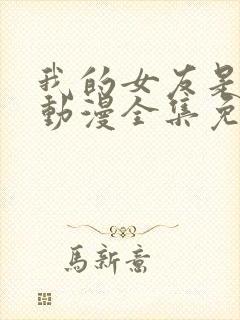 我的女友是
動漫全集免
馬新意